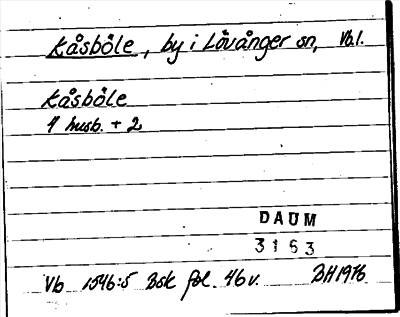 Kåsböle, by i Lövånger sn, Vb.l.
Kåsböle
4 husb. + 2
DAUM
3163
Vb 1546:5 Bsk fol. 46v. BH1976